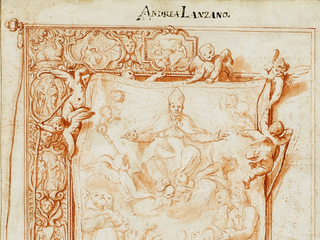 ANDREA LANZANO.